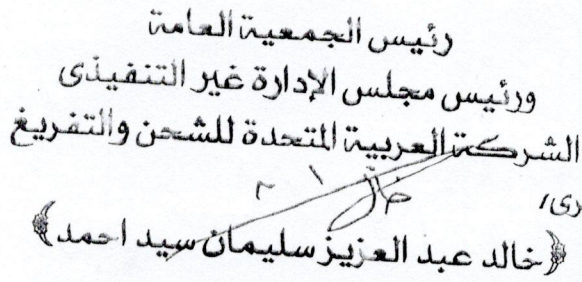 رئيس الجمعية العامة
ورئيس مجلس الإدارة غير التنفيذى
الشركة العربية المتحدة للشحن والتفريغ
﴿خالد عبد العزيز سليمان سيد احمد﴾